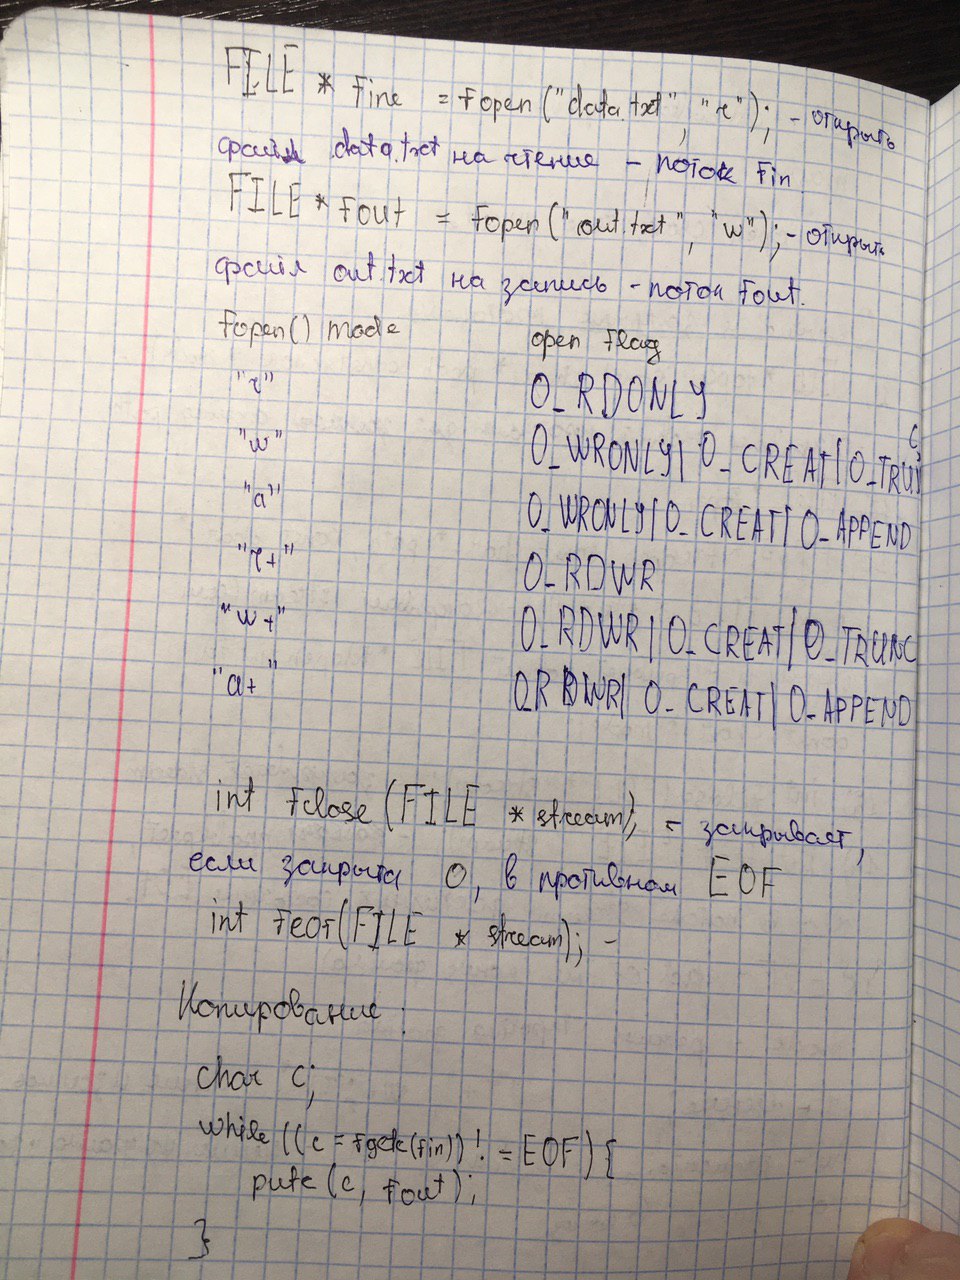 FILE * fine = fopen("data.txt", "r"); - открыть
файл data.txt на чтения - поток fin
FILE * fout = fopen("out.txt", "w"); - открыть
файл out.txt на запись - поток fout.
fopen() mode open flag
"r" O_RDONLY
"w" O_WRONLY| O_CREAT| O_TRUNC
"a" O_WRONLY| O_CREAT| O_APPEND
"r+" O_RDWR
"w+" O_RDWR| O_CREAT| O_TRUNC
"a+" O_RDWR| O_CREAT| O_APPEND
int fclose (FILE * stream); - закрывает,
если закрыта 0, в противном EOF
int feof(FILE * stream); -
Копирование:
char c;
while ((c = fgetc(fin)) != EOF) {
putc (c, fout);
}